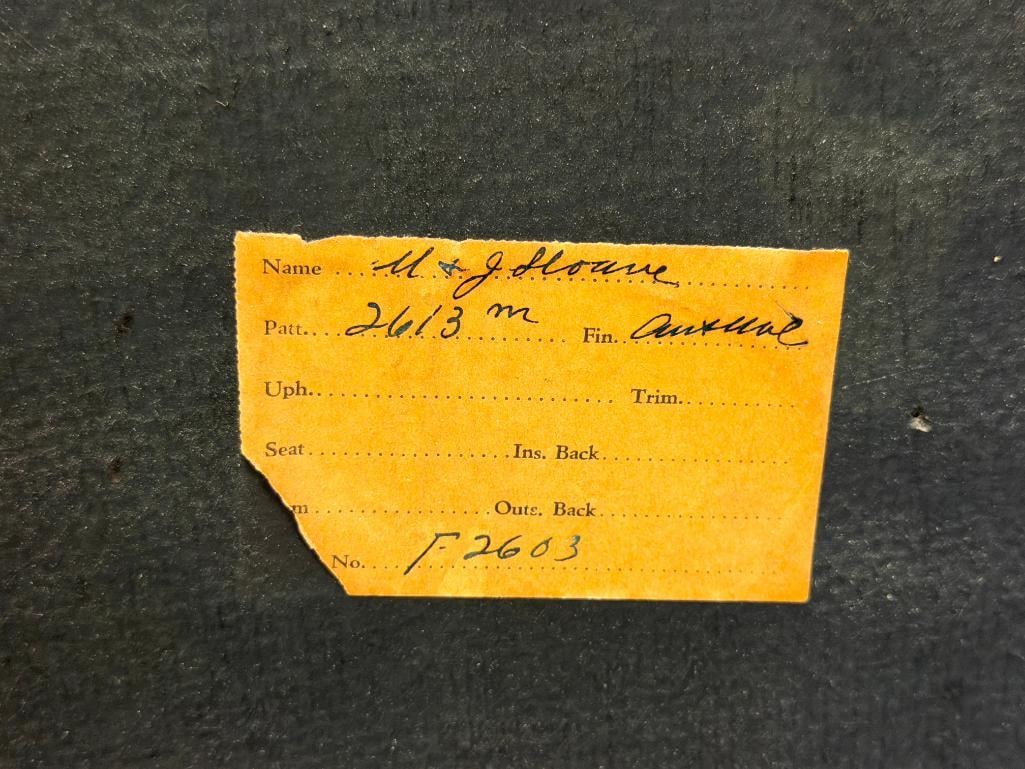 Name ... W & J Sloane
Patt.... 2613 m Fin..
Uph. Trim.
Seat Ins. Back
m Outs. Back
No. F2603